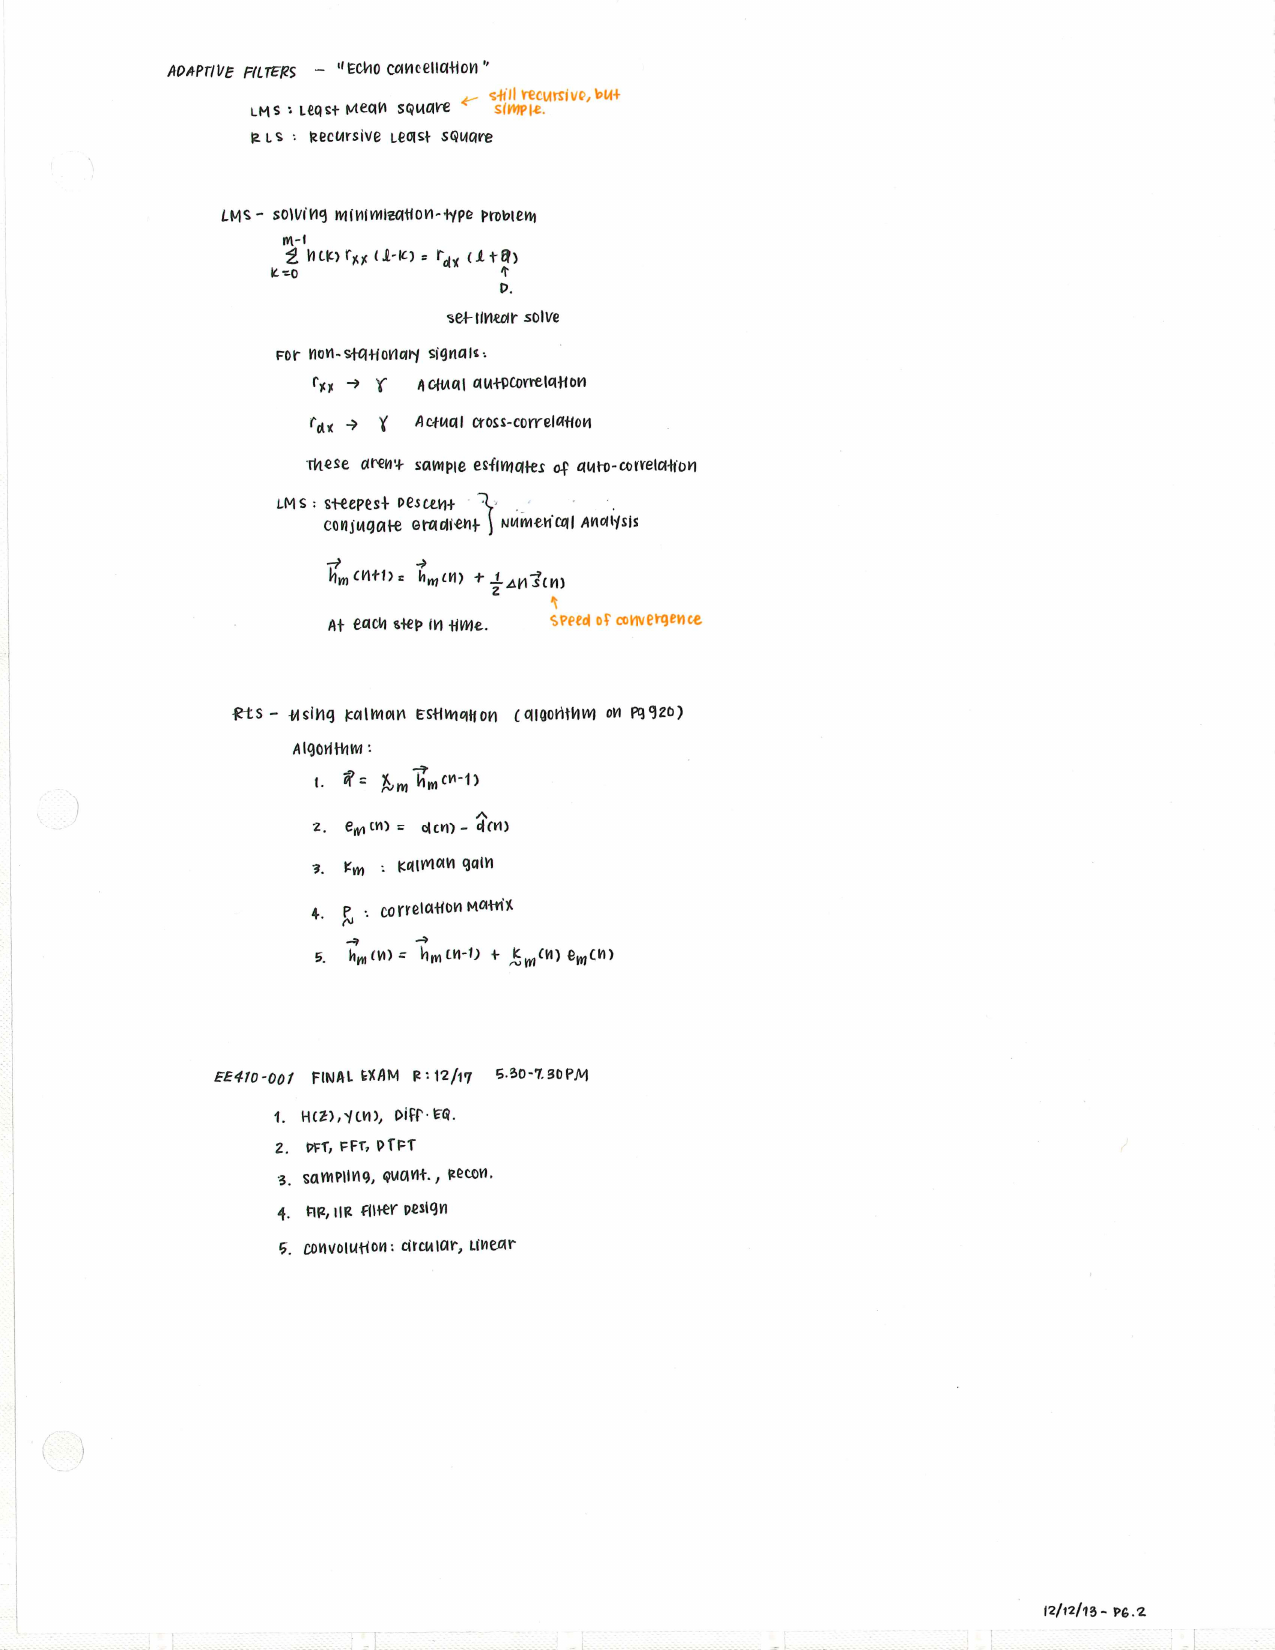 ADAPTIVE FILTERS - "Echo cancellation"
LMS : Least Mean Square ← still recursive, but simple.
RLS : Recursive Least Square
LMS - solving minimization-type problem
m-1
Σ h(k) rxx (l-k) = rdx (l+
k=0
↑
D.
set linear solve
For non-stationary signals:
rxx → γ Actual autocorrelation
rdx → γ Actual cross-correlation
These aren't sample estimates of auto-correlation
LMS : Steepest Descent
Conjugate Gradient } Numerical Analysis
h⃗m (n+1) = h⃗m (n) + 1/2 Δn s⃗(n)
↑
At each step in time. Speed of convergence
- Using Kalman Estimation (algorithm on pg 920)
Algorithm :
1. = Xm h⃗m (n-1)
2. em (n) = d(n) - d̂(n)
3. Km : Kalman gain
4. P : correlation Matrix
5. h⃗m (n) = h⃗m (n-1) + Km (n) em (n)
EE410-001 FINAL EXAM R : 12/17 5.30-7.30 PM
1. H(Z), Y(n), Diff. EQ.
2. DFT, FFT, DTFT
3. Sampling, Quant., Recon.
4. FIR, IIR Filter Design
5. Convolution : circular, Linear
12/12/13 - PG. 2